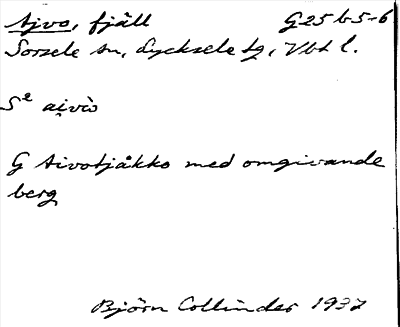 Ajvo, fjäll G25b5-6
Sorsele sn, Lycksele lg, Vbt l.
S² ai̯vò
G Aivotjåkko med omgivande
berg
Björn Collinder 1937